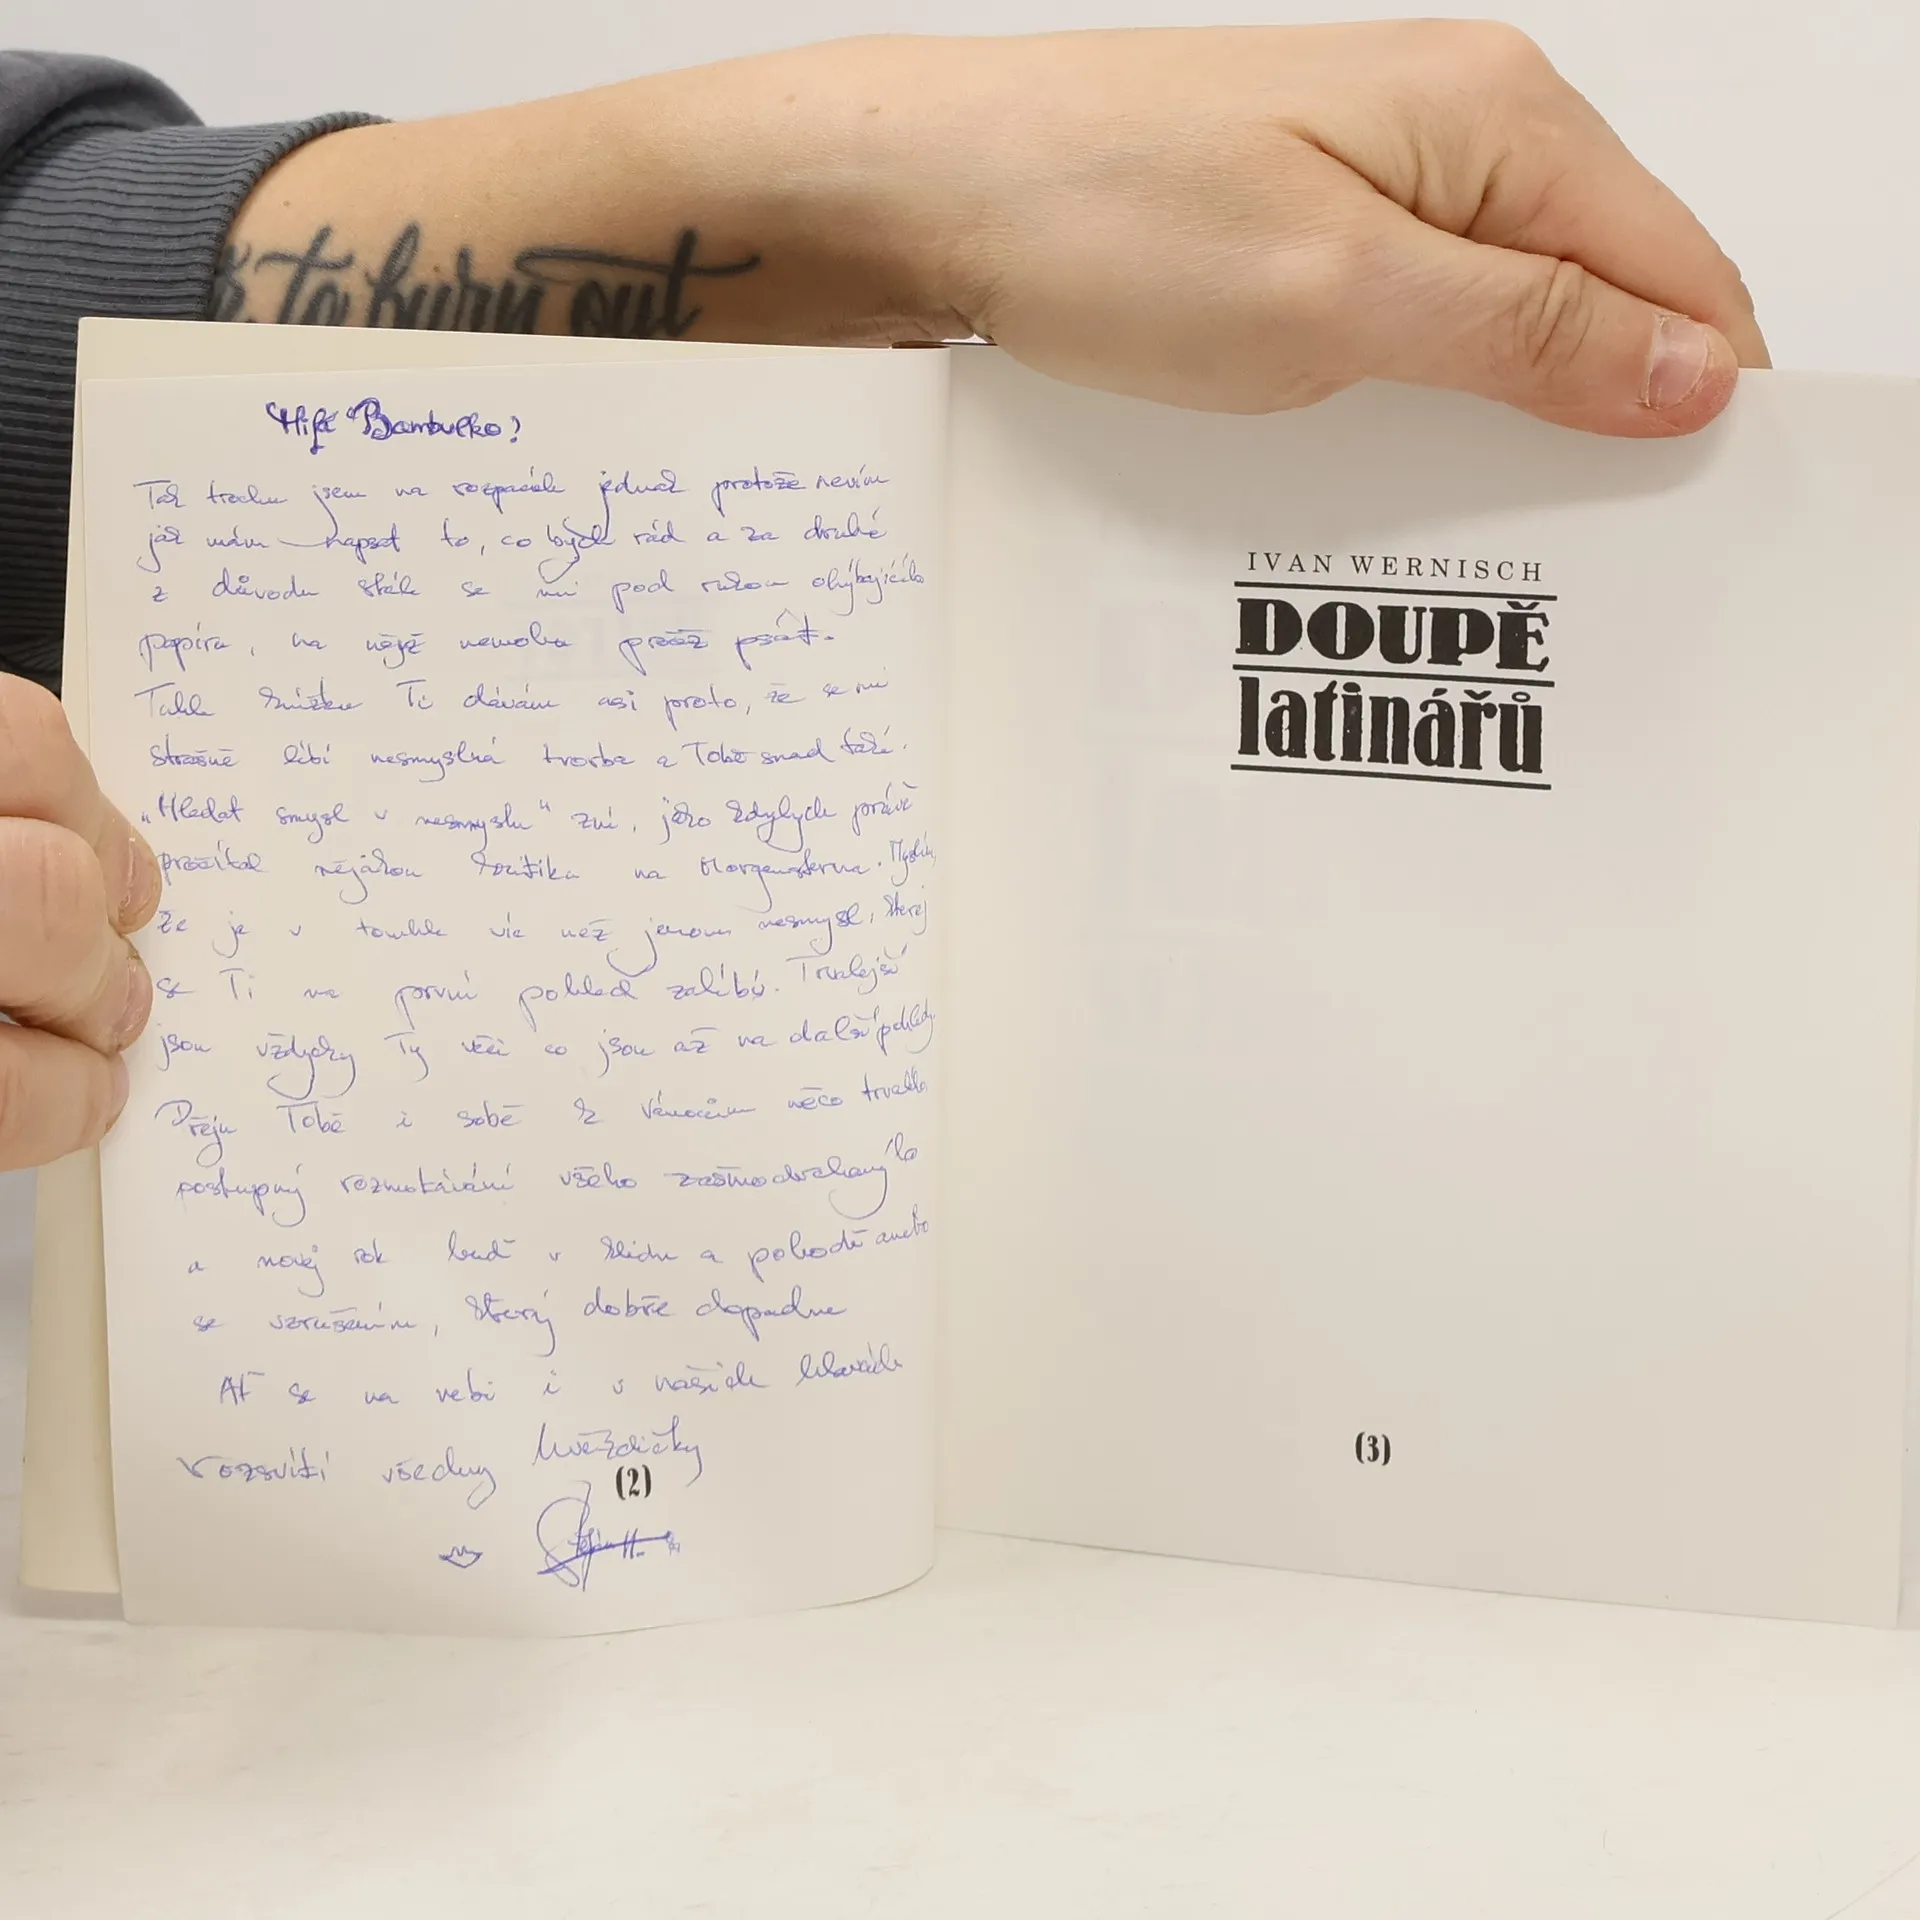 to burn out
Milá Bambulko!
Tak trochu jsem na rozpacích jednak protože nevím
jak mám napsat to, co bych rád a za druhé
z důvodu stále se mi pod rukou ohýbajícího
papíru, na nějž nemohu psát.
Tuhle knížku Ti dávám asi proto, že se mi
strašně líbí nesmyslná tvorba a Tobě snad také.
„Hledat smysl v nesmyslu“ zní, jako kdybych právě
pročítal nějakou kritiku na Morgensterna. Myslím,
že je v tomhle víc než jenom nesmysl, kterej
se Ti na první pohled zalíbí. Trvalejší
jsou vždycky Ty věci co jsou až na další pohledy.
Přeju Tobě i sobě k Vánocům něco trvalýho
postupný rozmotávání všeho zašmodrchanýho
a novej rok buď v klidu a pohodě anebo
se vzrušením, který dobře dopadne
Ať se na nebi i v našich hlavách
rozsvítí všechny hvězdičky
(2)
IVAN WERNISCH
DOUPĚ
latinářů
(3)